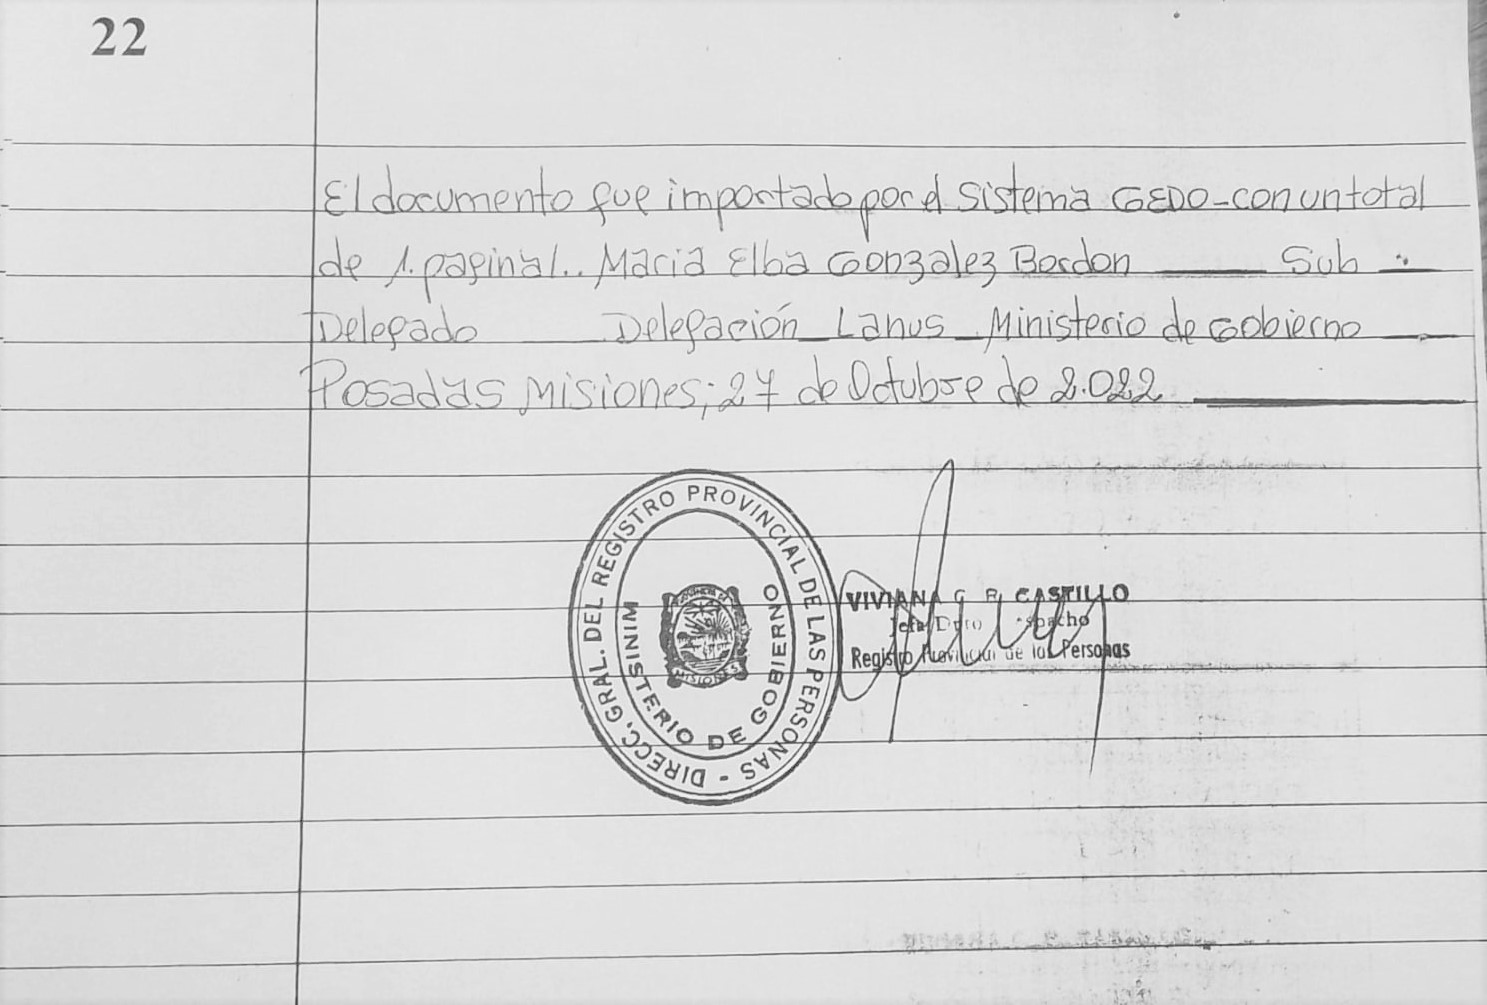 22
El documento fue importado por el Sistema GEDO-con un total
de 1. pagina/.. Maria Elba Gonzalez Bordon ____ Sub
Delegado Delegación Lanus Ministerio de Gobierno
Posadas Misiones; 27 de Octubre de 2.022
DIRECC. GRAL. DEL REGISTRO PROVINCIAL DE LAS PERSONAS -
MINISTERIO DE GOBIERNO
MISIONES
VIVIANA G. R. CASTILLO
Jefa Dpto
Registro Provincial de las Personas